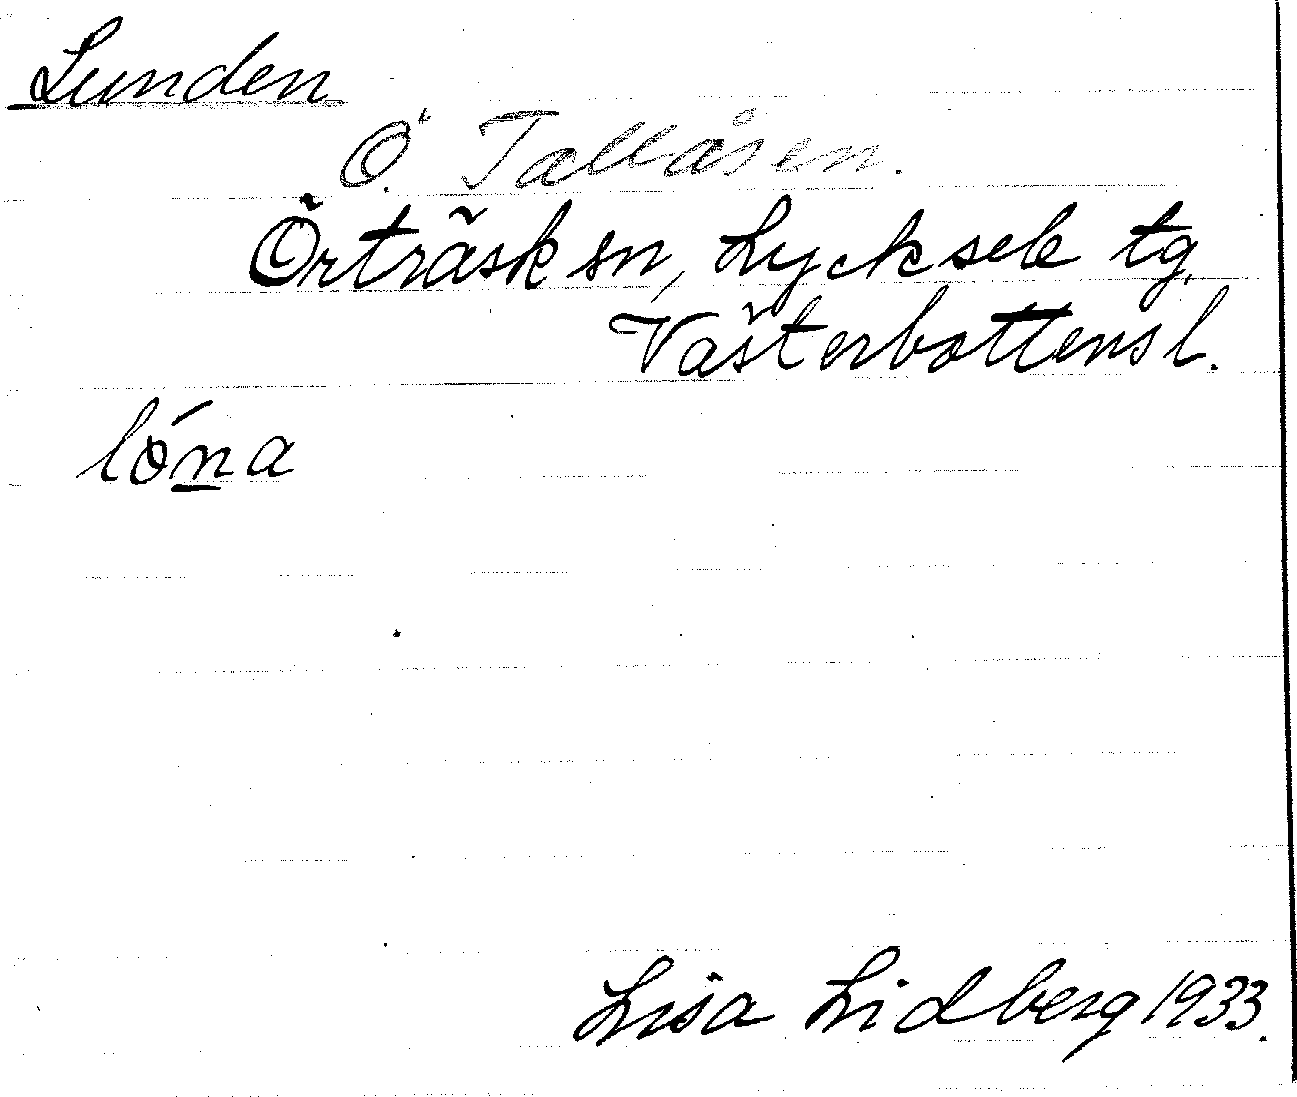 Lunden
Ö. Tallåsen.
Örträsk sn, Lycksele tg
Västerbottens l.
lóna
Lisa Lidberg 1933.